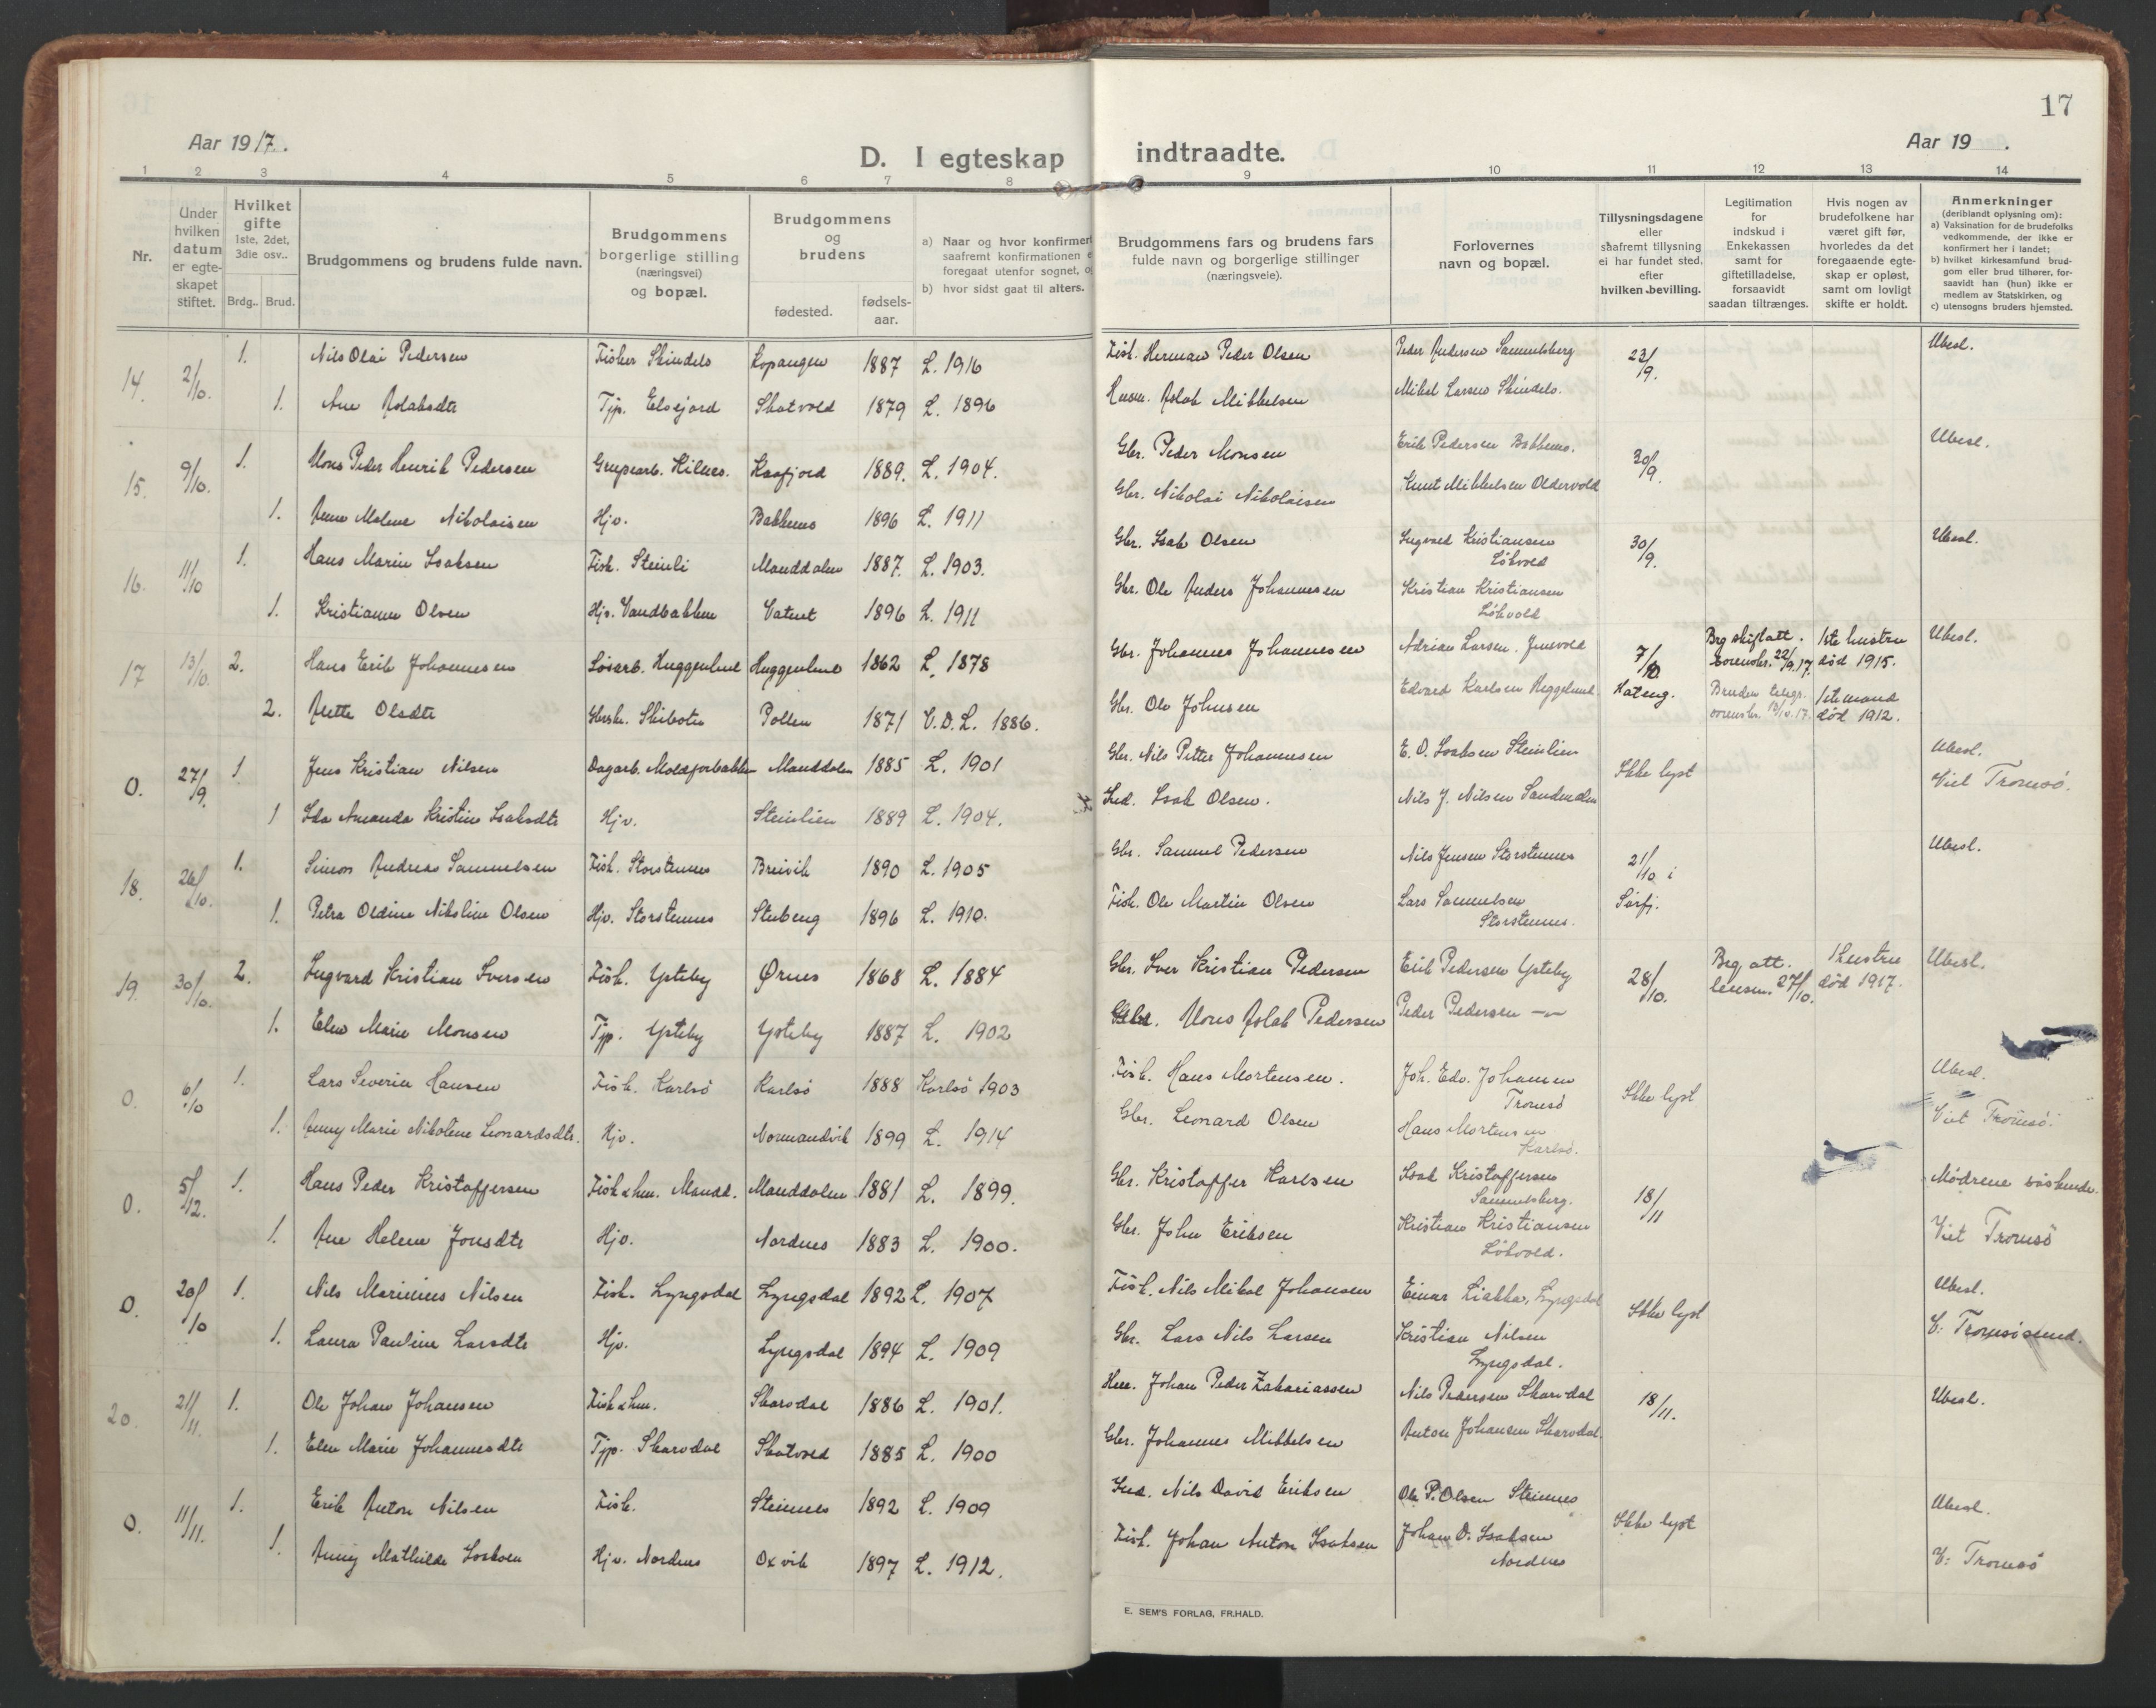 17
Aar 1917.
Aar 19 .
D. I egteskap indtraadte.
1 2 3 4 5 6 7 8 9 10 11 12 13 14
Nr.
Under hvilken datum er egteskapet stiftet.
Hvilket gifte 1ste, 2det, 3die osv..
Brdg.. Brud.
Brudgommens og brudens fulde navn.
Brudgommens borgerlige stilling (næringsvei) og bopæl.
Brudgommens og brudens
fødested.
fødsels-aar.
a) Naar og hvor konfirmert
saafremt konfirmationen
foregaat utenfor sognet,
b) hvor sidst gaat til alters.
Brudgommens fars og brudens fars
fulde navn og borgerlige stillinger
(næringsveie).
Forlovernes
navn og bopæl.
Tillysningsdagene
eller
saafremt tillysning
ei har fundet sted,
efter
hvilken bevilling.
Legitimation
for
indskud i
Enkekassen
samt for
giftetilladelse,
forsaavidt
saadan tiltrænges.
Hvis nogen av
brudefolkene har
været gift før,
hvorledes da det
foregaaende egte-
skap er opløst,
samt om lovligt
skifte er holdt.
Anmerkninger
(deriblandt oplysning om):
a) Vaksination for de brudefolks
vedkommende, der ikke er
konfirmert her i landet;
b) hvilket kirkesamfund brud-
gom eller brud tilhører, for-
saavidt han (hun) ikke er
medlem av Statskirken, og
c) utensogns bruders hjemsted.
14. 2/10. 1. Nils Olai Pedersen Fisker Skindelv Kopangen 1887 L. 1916 Fisk. Herman Peder Olsen Peder Andersen Samuelsberg 23/9. Ubesl.
1. Ane Aslaksdtr Tjp. Elvejord Skatvold 1879 L. 1896 Aslak Mikkelsen Mikal Larsen Skindelv.
15. 9/10. 1. Mons Peder Henrik Pedersen Grupearb. Hilnes. Kaafjord 1889. L. 1904. Gbr. Peder Monsen Erik Pedersen Bakkenes. 30/9. Ubesl.
1. Anne Malene Nikolaisen Hjv. Bakkenes 1896 L. 1911 Gbr. Nikolai Nikolaisen Knut Mikkelsen Oldervold
16. 11/10 1. Hans Marin Isaksen Fisk. Steinli Manddalen 1887. L. 1903. Gbr. Isak Olsen Ingvald Kristiansen Løkvold 30/9. Ubesl.
1. Kristianne Olsen Hjv. Vandbakken Vatnet 1896 L. 1911 Gbr. Ole Anders Johannesen Kristian Kristiansen Løkvold
17 13/10. 2. Hans Erik Johannesen Løsarb. Huggenlund Huggenlund 1862 L. 1878 Gbr. Johannes Johannesen Adrian Larsen. 7/10 Brg skifteatt. sorenskr. 22/9.17. 1ste hustru død 1915. Ubesl.
2. Anette Olsdtr Gbrsk. Skibotn Pollen 1871 V.D.L. 1886. Gbr. Ole Johnsen Edvard Karlsen Heggelund Hateng. Bruden telegr. sorenskr. 13/10.17. 1ste mand død 1912.
0. 27/9. 1 Jens Kristian Nilsen Dagarb. Moldforbakken Manddalen 1885 L. 1901 Gbr. Nils Petter Johannesen E. O. Isaksen Steinlien Ikke lyst Ubesl.
1 Ida Amanda Kristine Isaksdtr Hjv. Steinlien 1889 L. 1904. Ind. Isak Olsen. Nils J. Nilsen Viet Tromsö.
18. 26/10. 1. Simon Andreas Samuelsen Fisk. Storstennes Breivik 1890 L. 1905 Gbr. Samuel Pedersen Nils Jensen Storstennes 21/10 i Ubesl.
1. Petra Oldine Nikoline Olsen Hjv. Storstennes Stubeng 1896 L. 1910. Fisk. Ole Martin Olsen Lars Samuelsen Storstennes. Sørfj.
19. 30/10. 2. Ingvard Kristian Iversen Fisk. Ysteby Ørnes 1868 L. 1884 Gbr. Iver Kristian Pedersen Erik Pedersen Ysteby 28/10. Brg. att. lensm. 27/10. 1 hustru død 1917. Ubesl.
1. Elen Marie Monsen Tjp. Ysteby Ysteby 1887 L. 1902 Mons Aslak Pedersen Peder Pedersen —"—
0. 6/10 1. Lars Severin Hansen Fisk. Karlsö Karlsö 1888 Karlsö 1903 Fisk. Hans Mortensen. Joh. Edv. Johansen Tromsö Ikke lyst Ubesl.
1. Anny Marie Nikoline Leonardsdtr. Hjv. Normandvik 1899 L. 1914 Gbr. Leonard Olsen Hans Mortensen Karlsö. Viet Tromsö.
0. 5/12. 1. Hans Peder Kristoffersen Fisk & hm. Mandd. Manddalen 1881 L. 1899. Gbr. Kristoffer Karlsen Isak Kristoffersen Samuelsberg. 18/11 Mødrene søskende.
1. Ane Helene Jonsdtr Hjv. Nordnes 1883 L. 1900. Gbr. John Eriksen Kristian Kristiansen Løkvold. Viet Tromsö
0. 20/10 1. Nils Marinius Nilsen Fisk. Lyngsdal Lyngsdal 1892 L. 1907 Fisk. Nils Mikal Johansen Einar Liakka, Lyngsdal Ikke lyst Ubesl.
1. Laura Pauline Larsdtr Hjv. Lyngsdal 1894 L. 1909 Gbr. Lars Nils Larsen Kristian Nilsen Lyngsdal. V: Tromsösund.
20. 21/11. 1. Ole Johan Johansen Fisk & hm. Skarsdal 1886 L. 1901. Johan Peder Zakariassen Nils Pedersen Skarvdal 18/11. Ubesl.
1. Elen Marie Johannesdtr Tjp. Skarvdal Skatvold 1885 L. 1900 Gbr. Johannes Mikkelsen Anton Johansen Skarvdal.
0. 11/11. 1. Erik Anton Nilsen Fisk. Steinnes 1892 L. 1909 Ind. Nils David Eriksen Ole P. Olsen Steinnes Ikke lyst Ubesl.
1. Anny Mathilde Isaksen Hjv. Nordnes Oxvik 1897 L. 1912. Fisk. Johan Anton Isaksen Johan D. Isaksen Nordnes V: Tromsö
E. SEM'S FORLAG, FR.HALD.